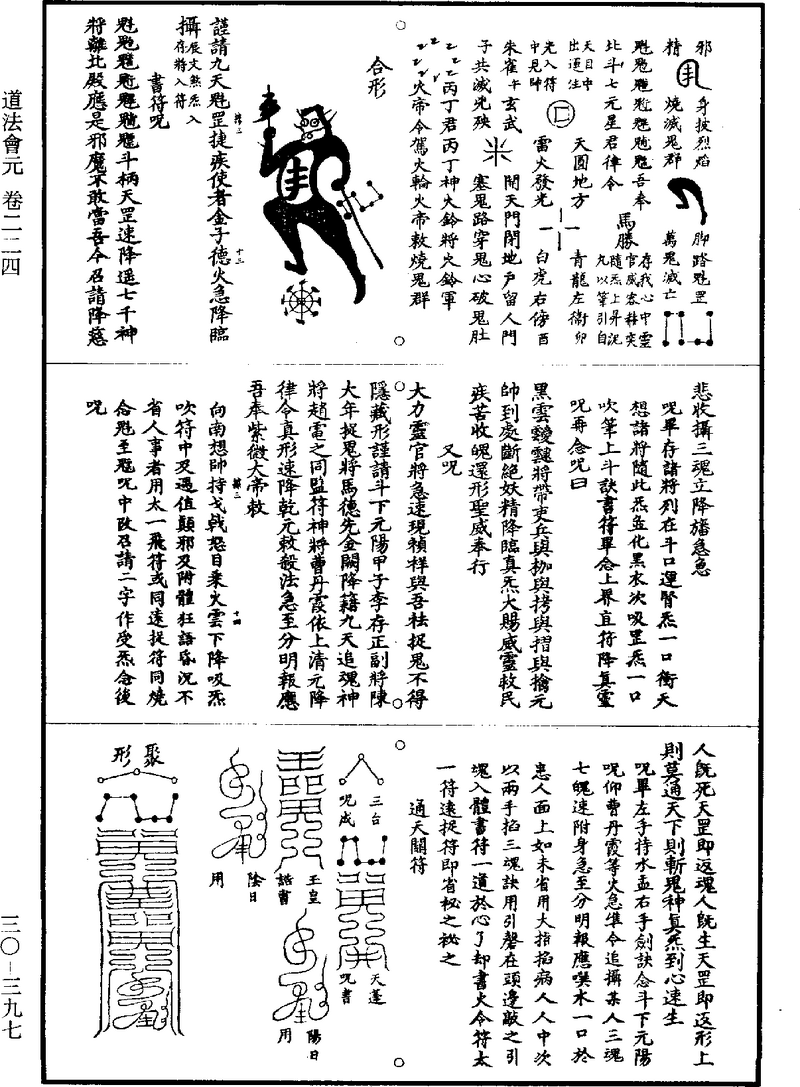 道法會元 卷二二四
三〇—三九七
邪 身披烈焰 腳踏魁罡
精 燒滅鬼群 萬鬼滅亡
魁𩲃𩳐𩲃魓𩳐魒吾奉 馬勝
北斗七元星君律令
天目中出逕往 天圓地方
光入符中見帥 雷火發光
朱雀午玄武 開天門閉地戶留人門
青龍左衛卯
白虎右傍酉
子共滅兇殃 塞鬼路穿鬼心破鬼肚
丙丁君丙丁神火鈴將火鈴軍
火帝令駕火輪火帝敕燒鬼群
合形
謹請九天魁罡捷疾使者金子德火急降臨
攝 展文煞炁入存將入符
書符呪
斗柄天罡速降遥七千神
將離北殿應是邪魔不敢當吾今召請降慈
悲收攝三魂立降旛急急
呪畢存諸將列在斗口運腎炁一口衝天
想諸將隨此炁並化黑衣次吸罡炁一口
吹筆上斗訣書符畢念上界直符降真靈
呪再念呪曰
黑雲靉靆將帶吏兵與枷與拷與摺與搶元
帥到處斷絕妖精降臨真炁大賜威靈救民
疾苦收魄還形聖威奉行
又呪
大力靈官將急速現禎祥與吾枯捉鬼不得
隱藏形謹請斗下元陽甲子李存正副將陳
大年捉鬼將馬德先金闕降籍九天追魂神
將趙電之同監符神將曹丹霞依上清元降
律令真形速降乾元敕殺法急至分明報應
吾奉紫微大帝敕
向南想帥持戈戟怒目乘火雲下降吸炁
吹符中及遇值顛邪及附體狂語昏沉不
省人事者用太一飛符或同速捉符同燒
念魁至魒呪中改召請二字作受炁念後
呪
人既死天罡即返魂人既生天罡即返形上
則莫通天下則斬鬼神真炁到心速生
呪畢左手持水盂右手劍訣念斗下元陽
呪仰曹丹霞等火急準令追攝某人三魂
七魄速附身急至分明報應噀水一口於
患人面上如未省用大指掐病人人中次
以兩手掐三魂訣用引磬在頭邊敲之引
魂入體書符一道於心了却書火令符太
一符速捉符即省祕之祕之
通天關符
三台
呪成
天蓬
呪書
玉皇
誥書
陰日
用
陽日
用
聚
形